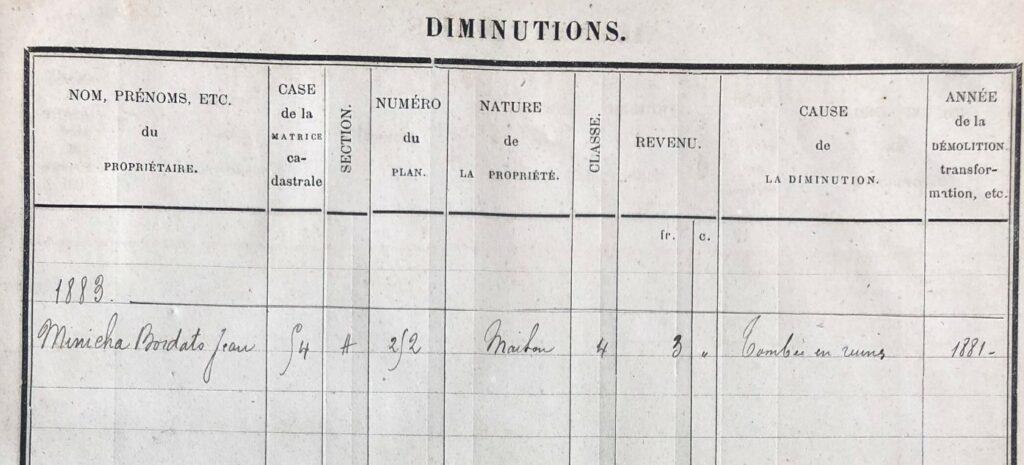 DIMINUTIONS.
NOM, PRÉNOMS, ETC.
du
PROPRIÉTAIRE.
CASE
de la
MATRICE
ca-
dastrale
SECTION.
NUMÉRO
du
PLAN.
NATURE
de
LA PROPRIÉTÉ.
CLASSE.
REVENU.
CAUSE
de
LA DIMINUTION.
ANNÉE
de la
DÉMOLITION
transfor-
mation, etc.
fr. c.
1883.
Minicha Bordats Jean 54 A 252 Maison 4 3 " Tombée en ruines 1881-